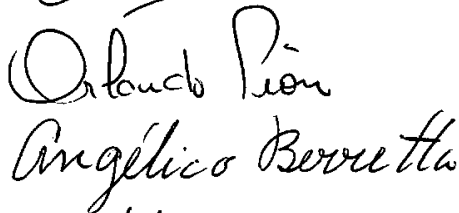 Orlando Pión
Angélico Berretta